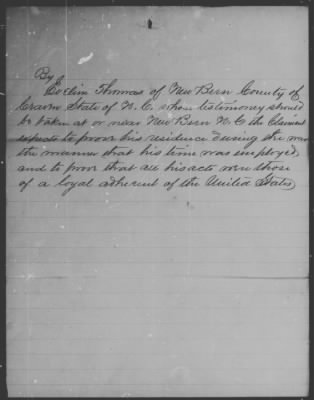 By
Evelin Thomas of New Bern County of
Craven State of N. C. whose testimoney should
be taken at or near New Bern N. C the Claimant
expects to proove his residence during the war
the manner that his time was employed,
and to proov that all his acts were those
of a loyal adherent of the United States,